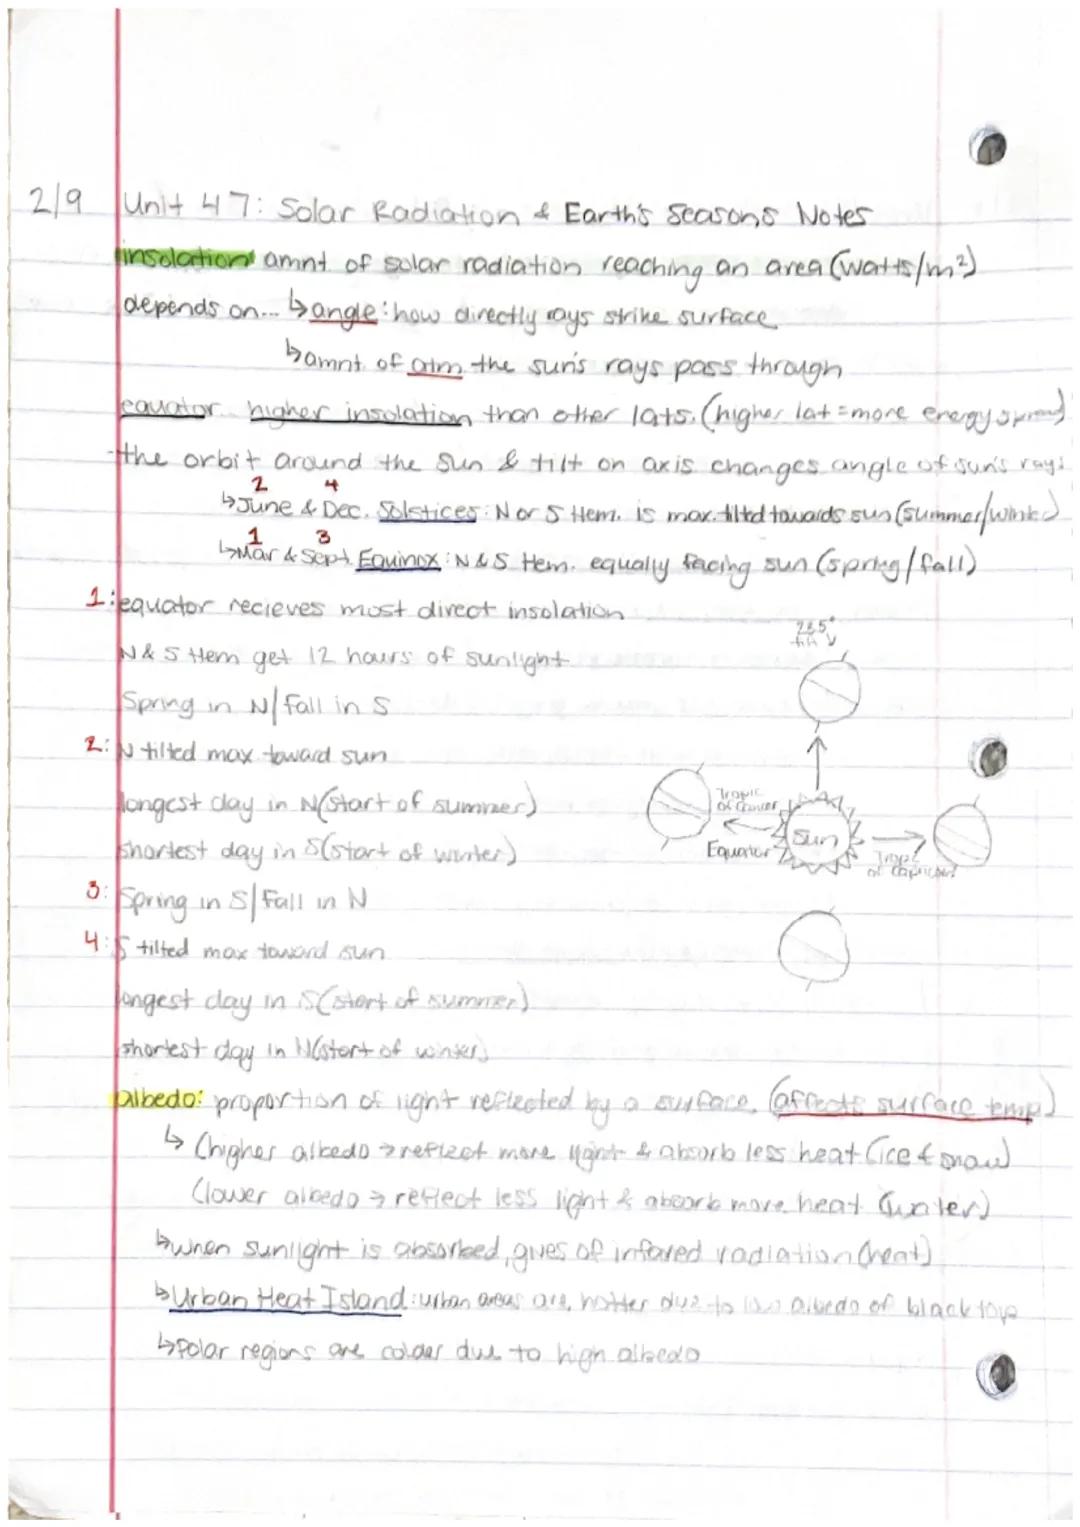 2/9 Unit 47: Solar Radiation & Earth's Seasons Notes
insolation amnt. of solar radiation reaching an area (watts/m²)
depends on... ↳angle: how directly rays strike surface
↳amnt. of atm. the sun's rays pass through
equator higher insolation than other lats. (higher lat = more energy spread)
-the orbit around the sun & tilt on axis changes angle of sun's rays
2 4
↳June & Dec. Solstices: N or S Hem. is max. tilted towards sun (summer/winter)
1 3
↳Mar & Sept. Equinox: N & S Hem. equally facing sun (spring/fall)
1: equator recieves most direct insolation
N & S Hem get 12 hours of sunlight
Spring in N/Fall in S
2: N tilted max toward sun
longest day in N(start of summer)
shortest day in S(start of winter)
3: Spring in S/Fall in N
4: S tilted max toward sun
longest day in S(start of summer)
shortest day in N(start of winter)
23.5°
tilt
Tropic
of cancer
Equator
Sun
Tropic
of capricorn
albedo: proportion of light reflected by a surface. (affects surface temp)
↳ (higher albedo → reflect more light & absorb less heat (ice & snow)
(lower albedo → reflect less light & absorb more heat (water)
↳when sunlight is absorbed, gives of infared radiation (heat)
↳Urban Heat Island: urban areas are hotter due to low albedo of blacktops
↳Polar regions are colder due to high albedo